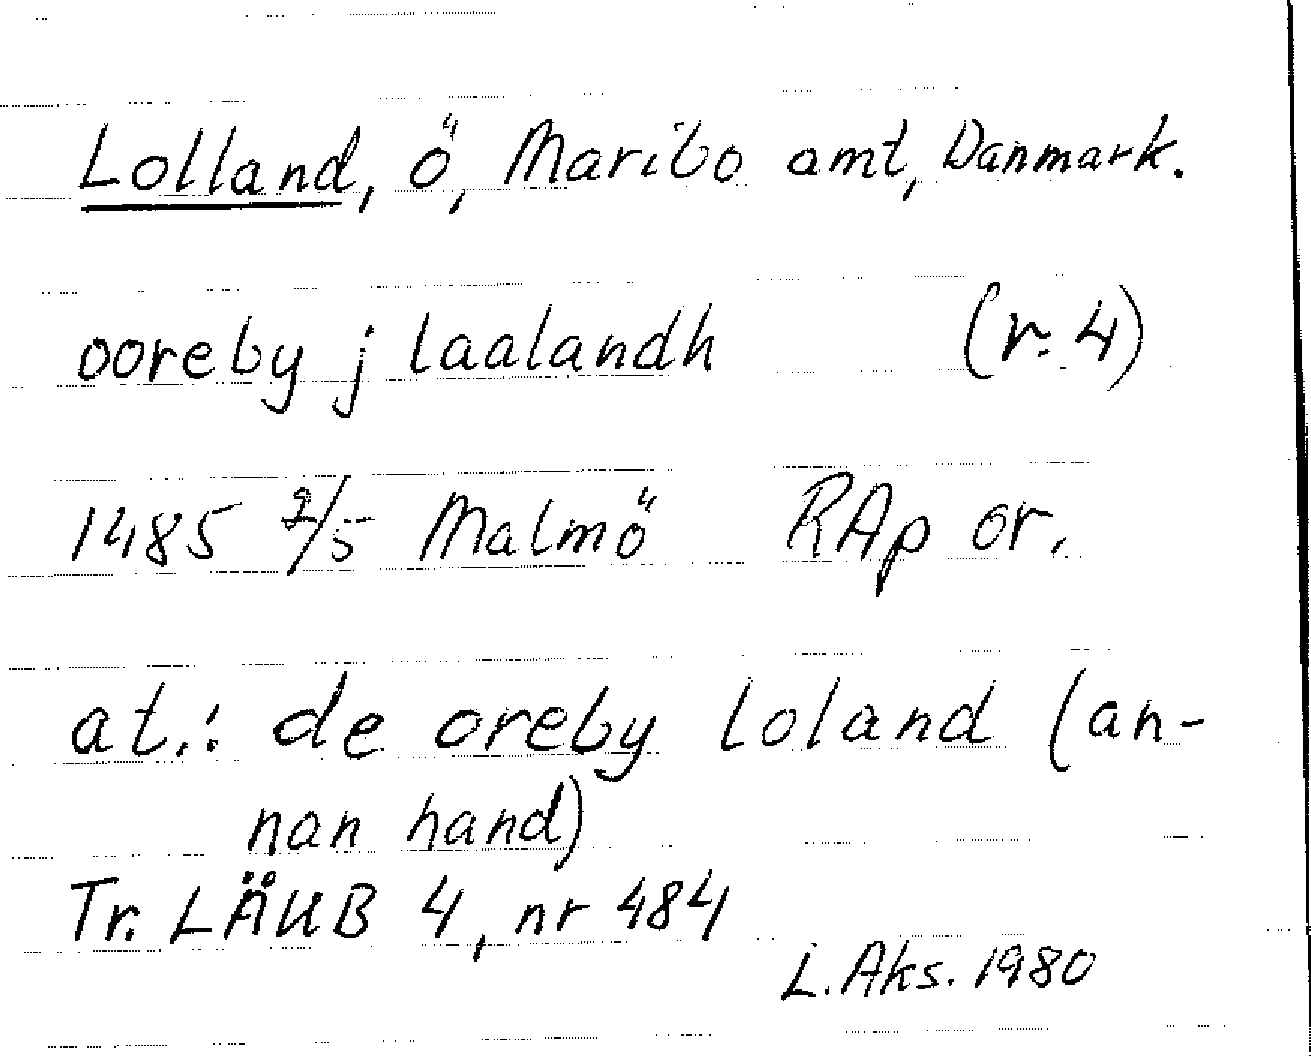 Lolland, ö, Maribo amt, Danmark.
ooreby j laalandh (r. 4)
1485 2/5 Malmö RAp or.
at.: de oreby loland (an-
nan hand)
Tr. LÄUB 4, nr 484
L. Aks. 1980